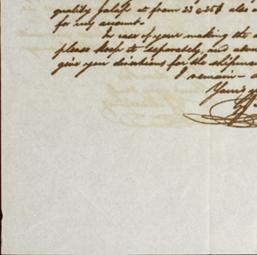 quality falls at from 33 c35¢ als
for my account.
In case of your making the
please keep it seperately, and
give you directions for the shipmen
I remain
Yours